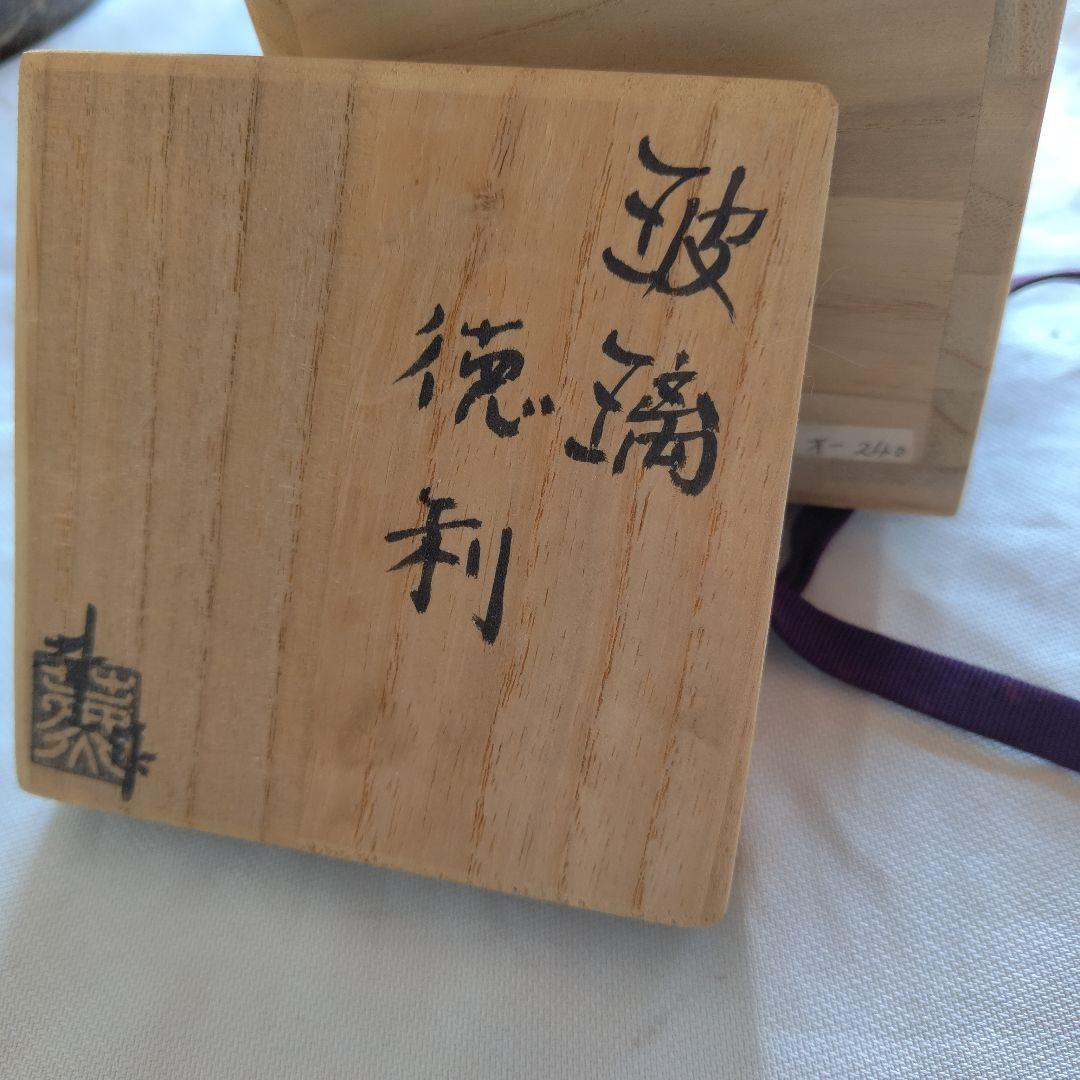 玻璃
徳利
オー240